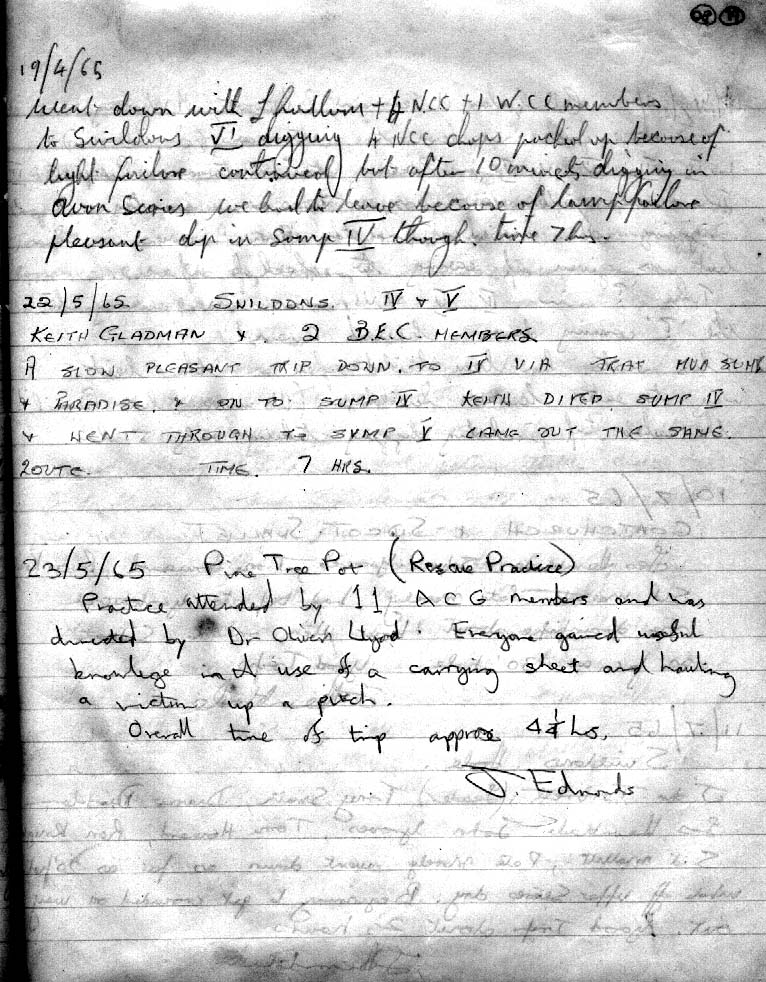 19/4/65
Went down with + 4 NCC + 1 W.CC members
to Swildons VI digging 4 NCC chaps packed up because of
light failure continued but after 10 minets digging in
Avon Series we had to leave because of lamp failure
pleasant dip in Sump IV though. time 7 hs.
22/5/65 SWILDONS. IV & V
KEITH GLADMAN & 2 B.E.C. MEMBERS
A SLOW PLEASANT TRIP DOWN. TO IV VIA THAT MUD SUMP
& PARADISE. & ON TO SUMP IV KEITH DIVED SUMP IV
& WENT THROUGH TO SUMP V CAME OUT THE SAME.
ROUTE. TIME. 7 HRS.
23/5/65 Pine Tree Pot (Rescue Practice)
Practice attended by 11 A C G members and was
directed by Dr Oliver Llyod. Everyone gained useful
knowlege in use of a carrying sheet and hauling
a victim up a pitch.
Overall time of trip approx 4¼ hs.
J. Edmonds